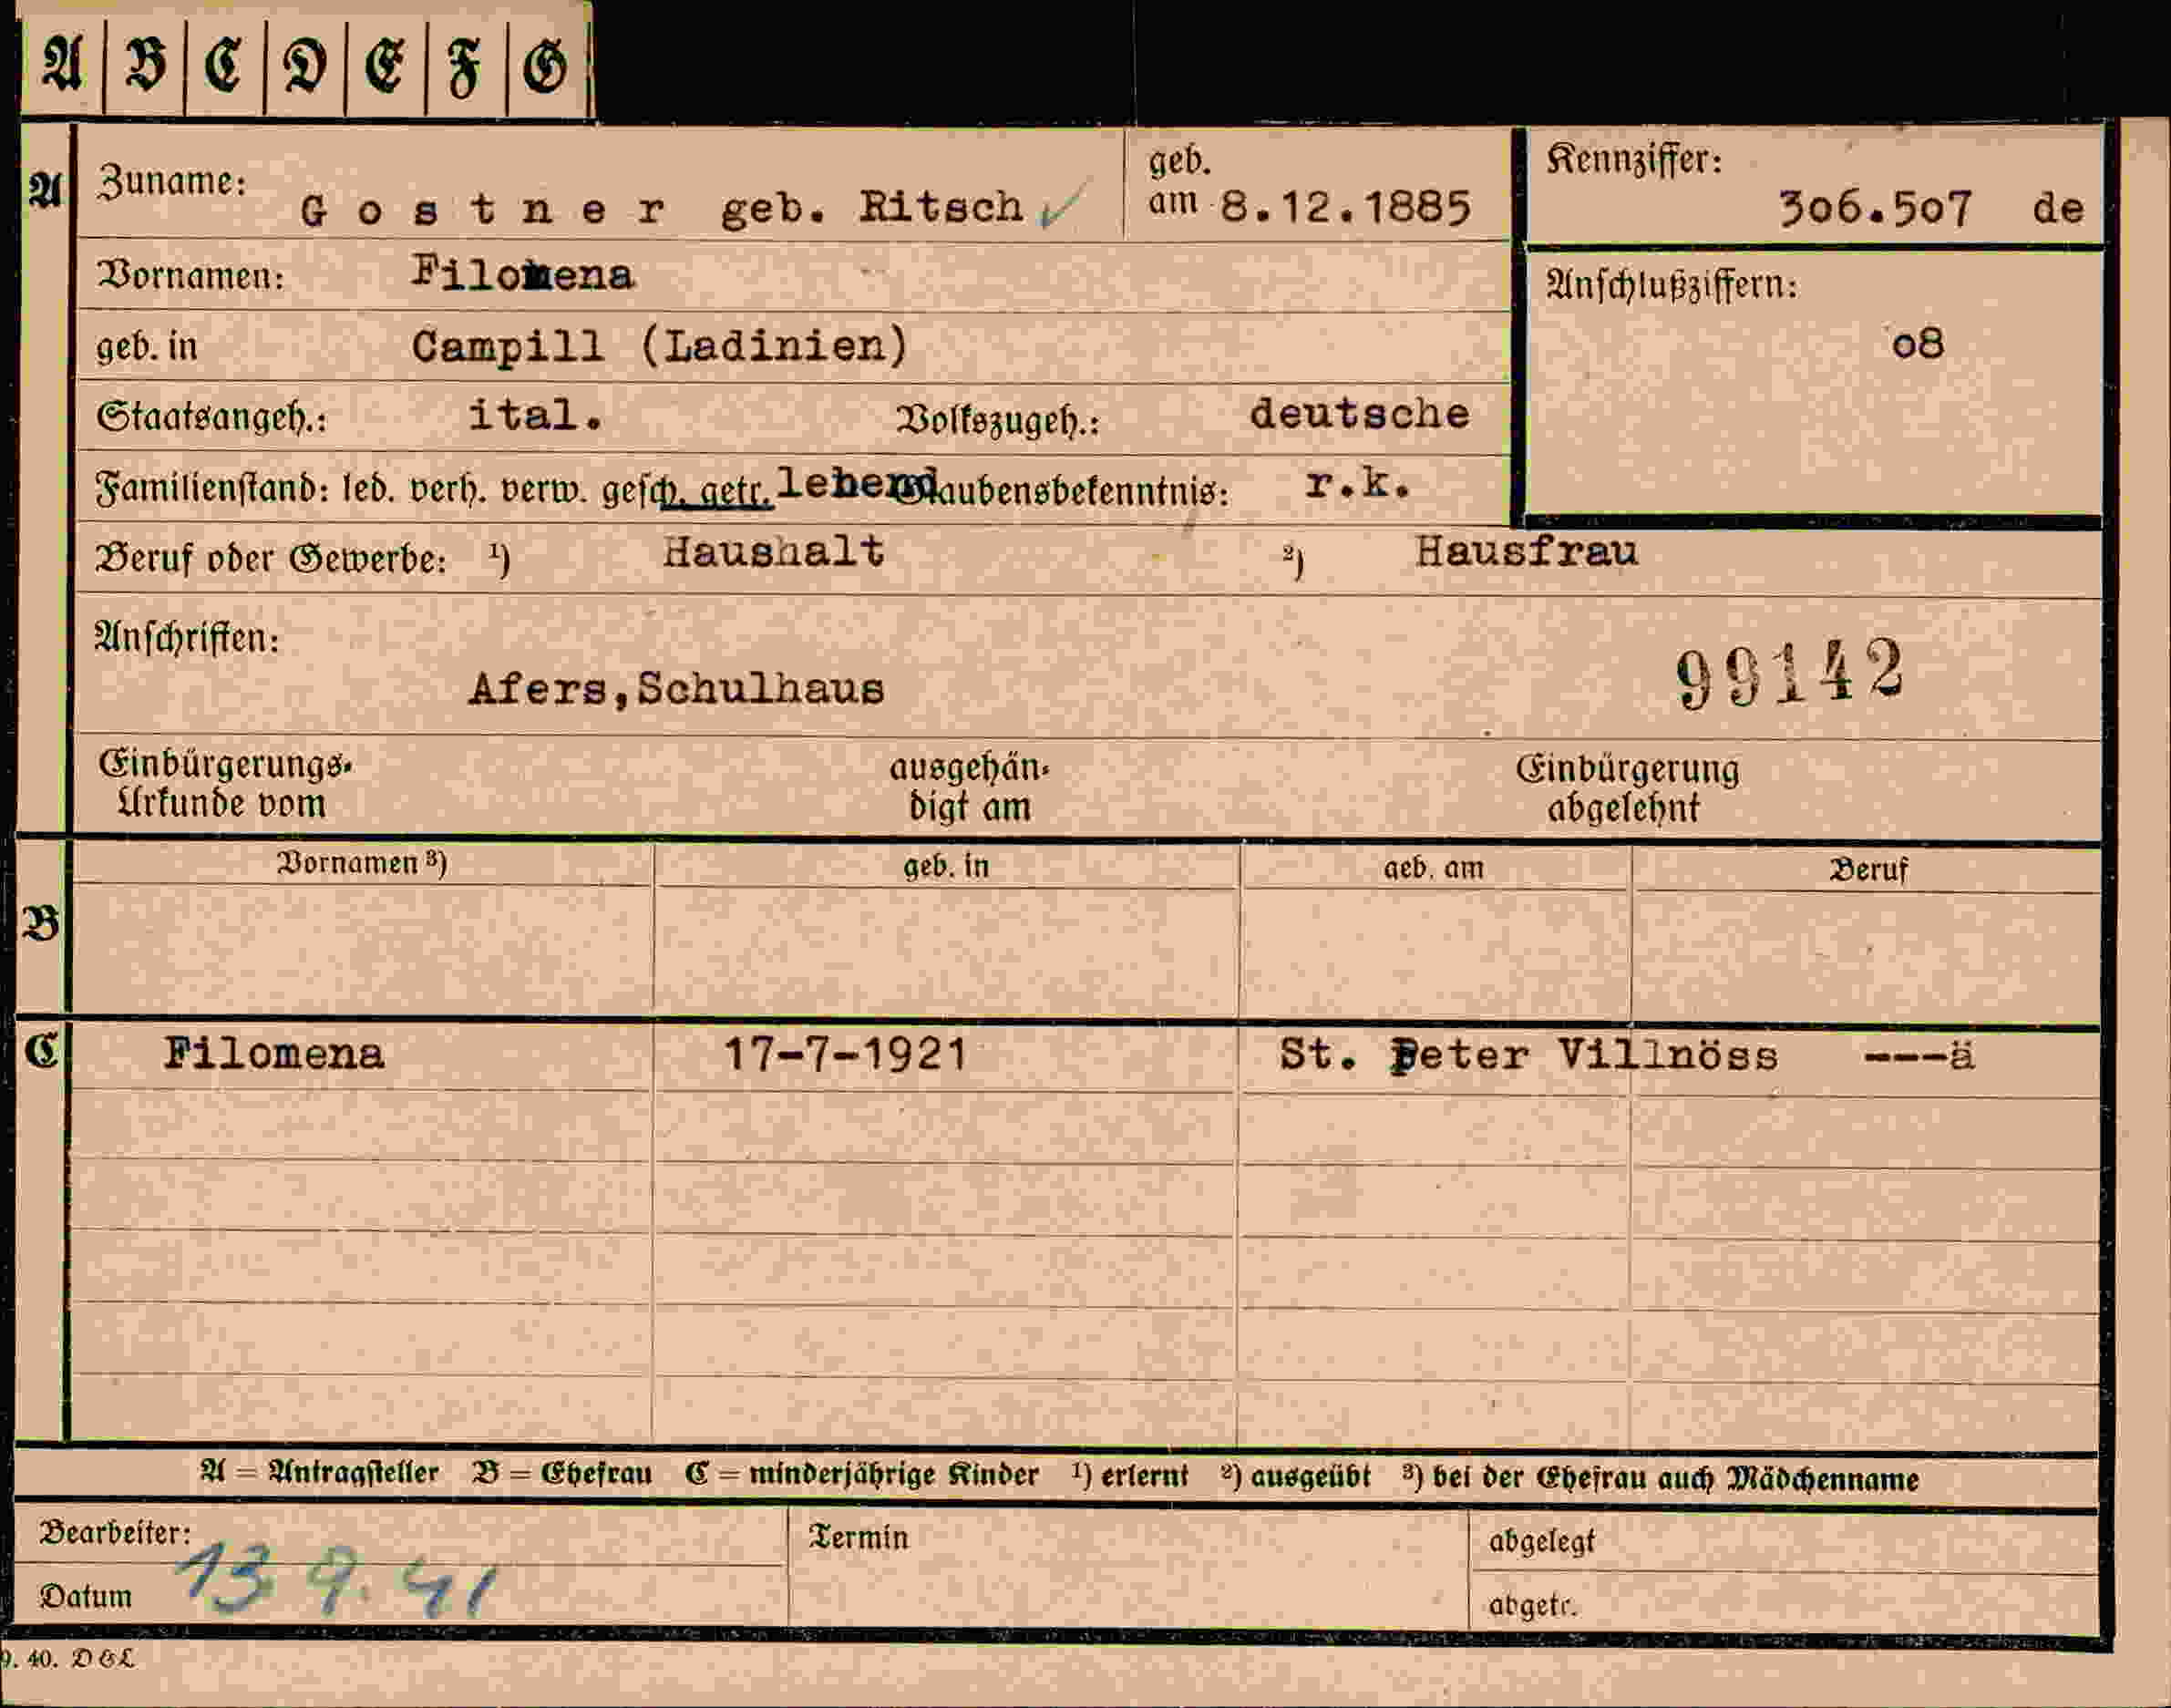 A B C D E F G
A Zuname: Gostner geb. Ritsch ✓ geb. am 8.12.1885 Kennziffer: 306.507 de
Vornamen: Filomena Anschlußziffern:
geb. in Campill (Ladinien) 08
Staatsangeh.: ital. Volkszugeh.: deutsche
Familienstand: led. verh. verw. gesch. getr. lebend Glaubensbekenntnis: r.k.
Beruf oder Gewerbe: ¹) Haushalt ²) Hausfrau
Anschriften:
Afers,Schulhaus 99142
Einbürgerungs- ausgehän- Einbürgerung
Urkunde vom digt am abgelehnt
Vornamen ³) geb. in geb. am Beruf
B
C Filomena 17-7-1921 St. Peter Villnöss ---ä
A = Antragsteller B = Ehefrau C = minderjährige Kinder ¹) erlernt ²) ausgeübt ³) bei der Ehefrau auch Mädchenname
Bearbeiter: Termin abgelegt
Datum 13. 9. 41 abgetr.
9. 40. D & L